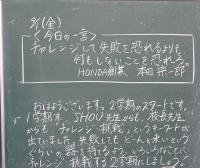 9/1(金)
<今日の一言>
チャレンジして失敗を恐れるよりも
何もしないことを恐れろ。
HONDA創業 本田 宗一郎
おはようございます。2学期のスタートです。
1学期末、SHOU先生からも、校長先生
からも「チャレンジ・挑戦」というキーワードが
出ていました。失敗しても、どーんと来いという
くらいの
チャレンジ・挑戦する2学期にしよう!